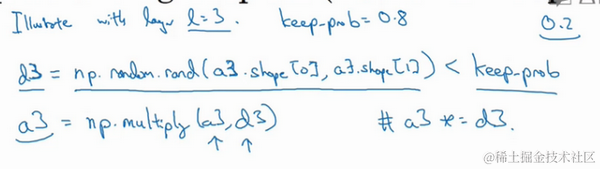 Illustrate with layer l=3. keep-prob=0.8 0.2
d3 = np.random.rand(a3.shape[0], a3.shape[1]) < keep-prob
a3 = np.multiply(a3, d3) # a3 *= d3.
@稀土掘金技术社区